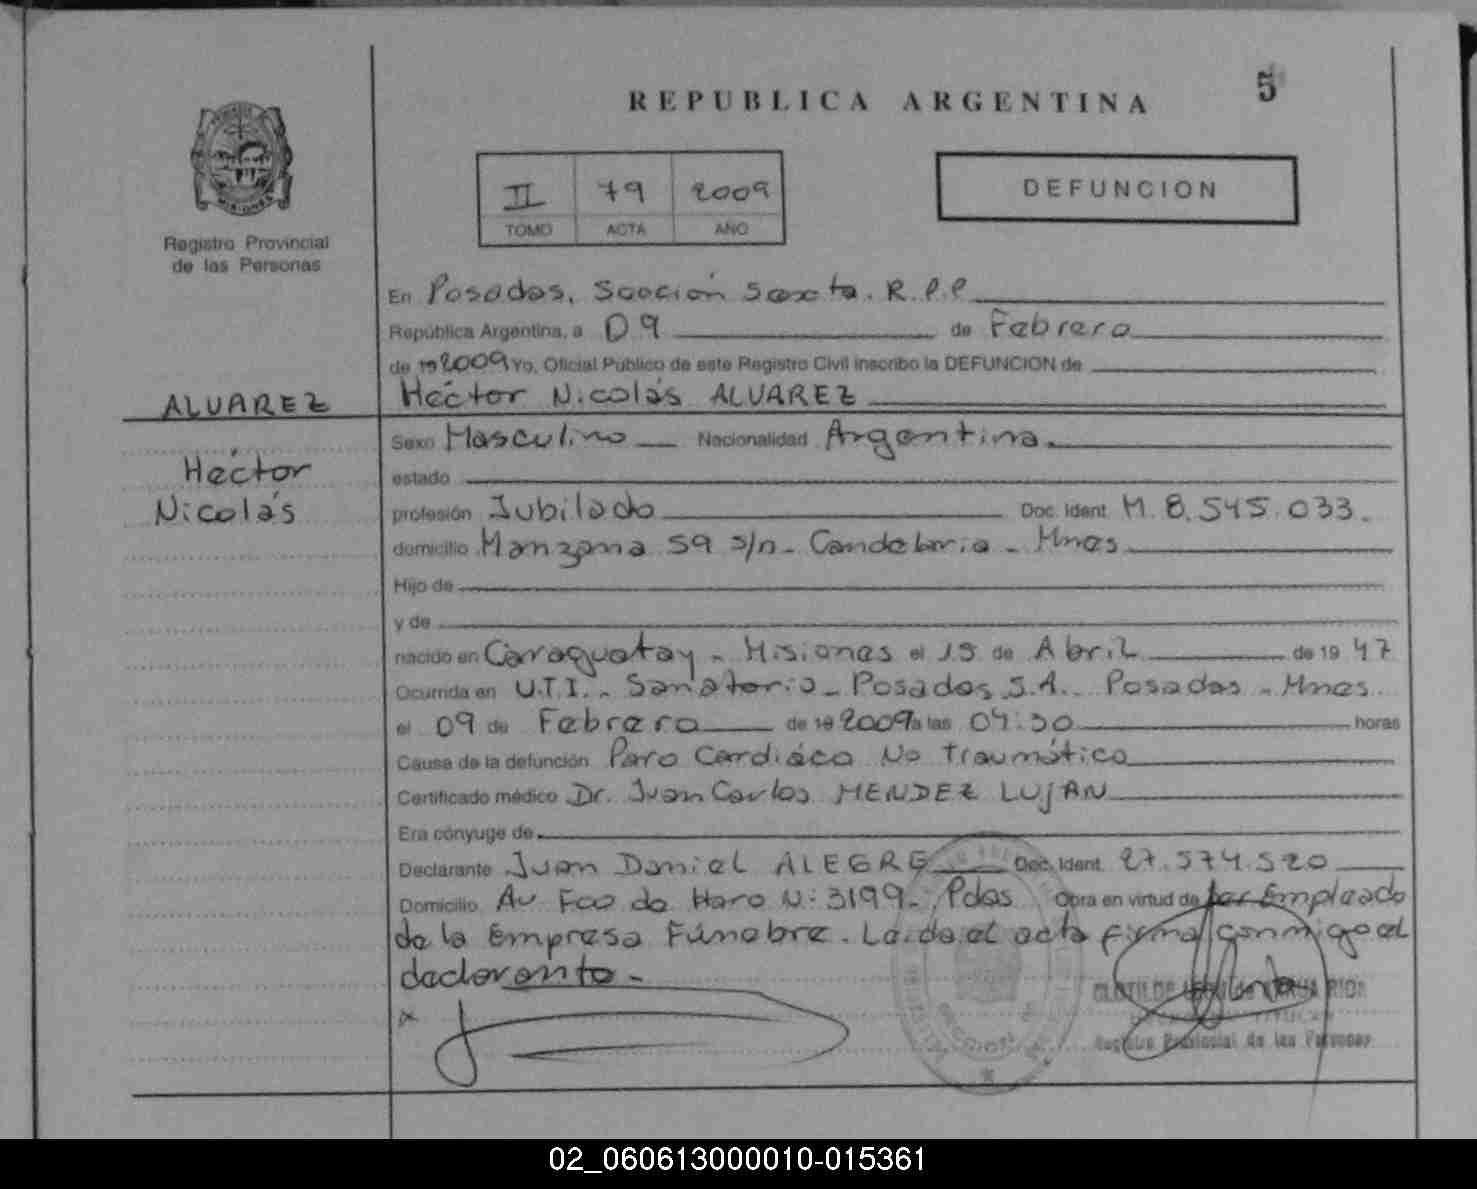 5
REPUBLICA ARGENTINA
II 79 2009
TOMO ACTA AÑO
DEFUNCION
MISIONES
Registro Provincial
de las Personas
En Posadas, Sección Sexta. R.P.P
República Argentina, a 09 de Febrero
de 19 2009 Yo, Oficial Público de este Registro Civil inscribo la DEFUNCION de
ALVAREZ
Héctor Nicolás ALVAREZ
Sexo Masculino Nacionalidad Argentina.
Héctor
estado
Nicolás
profesión Jubilado Doc. Ident. M. 8.545.033.
domicilio Manzana 59 s/n - Candelaria - Mnes
Hijo de
y de
nacido en Caraguatay - Misiones el 15 de Abril de 19 47
Ocurrida en U.T.I. - Sanatorio - Posadas S.A. Posadas - Mnes.
el 09 de Febrero de 19 2009 a las 04:30 horas
Causa de la defunción Paro Cardiáco No Traumático
Certificado médico Dr. Juan Carlos MENDEZ LUJAN
Era cónyuge de
Declarante Juan Daniel ALEGRE Doc. Ident. 27.574.520
Domicilio Av Fco de Haro N: 3199 - Pdas Obra en virtud de ser Empleado
de la Empresa Fúnebre. Leída el acta firma conmigo el
declarante -
x
Registro Provincial de las Personas
02_060613000010-015361